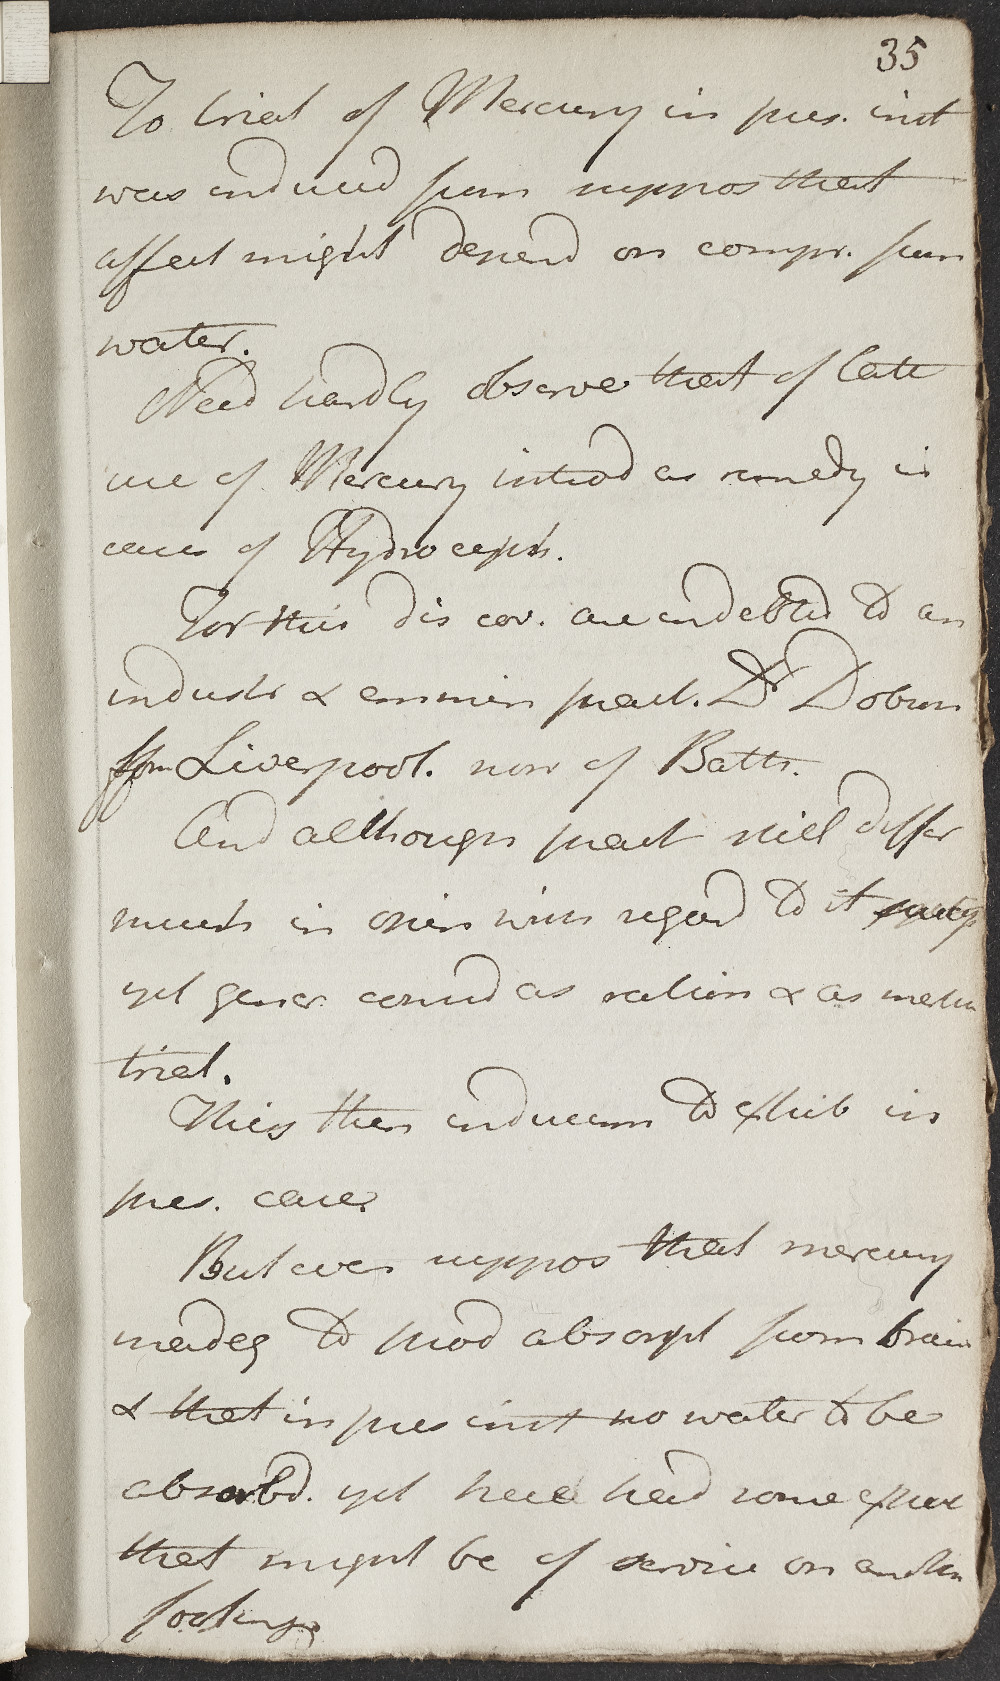 35
To trial of Mercury in pres. inst
was induced from suppos that
affect might depend on compr. from
water.
Need hardly observe that of late
use of Mercury introd as remedy in
cases of Hydroceph.
For this discov. are indebted to an
industr & eminen pract. Dr Dobson
fm Liverpool. now of Bath.
And although pract still differ
much in opin with regard to it
yet gener. consid as ration & as meritin
trial.
This then inducem to exhib in
pres. case.
But even suppos that mercury
madeg to prod absorpt from brain
& that in pres inst no water to be
absorbd. yet here had some expect
that might be of service on anothr
footing